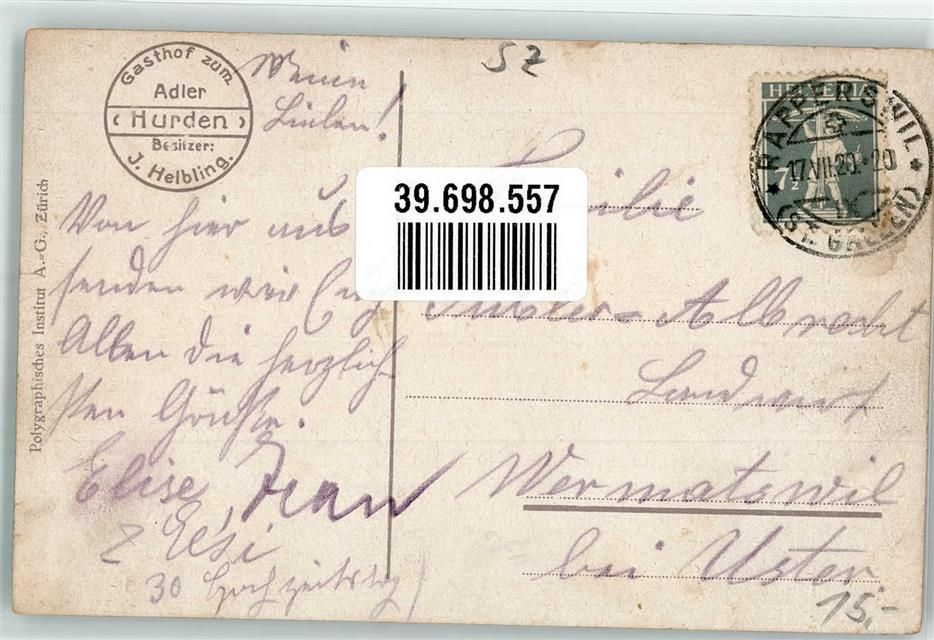 Gasthof zum
Adler
Hurden
Besitzer:
J. Helbling.
Meine
Lieben!
Von hier aus
senden wir Euch
Allen die herzlich-
sten Grüsse.
Elise, Jean
Elsi
30 Hochzeitstag
Polygraphisches Institut A.=G., Zürich
SZ
39.698.557
HELVETIA
7½
RAPPERSWIL
17.VII.20.-20
(ST. GALLEN)
Familie
Albrecht
Landwirt
Wermatswil
bei Uster.
15.-